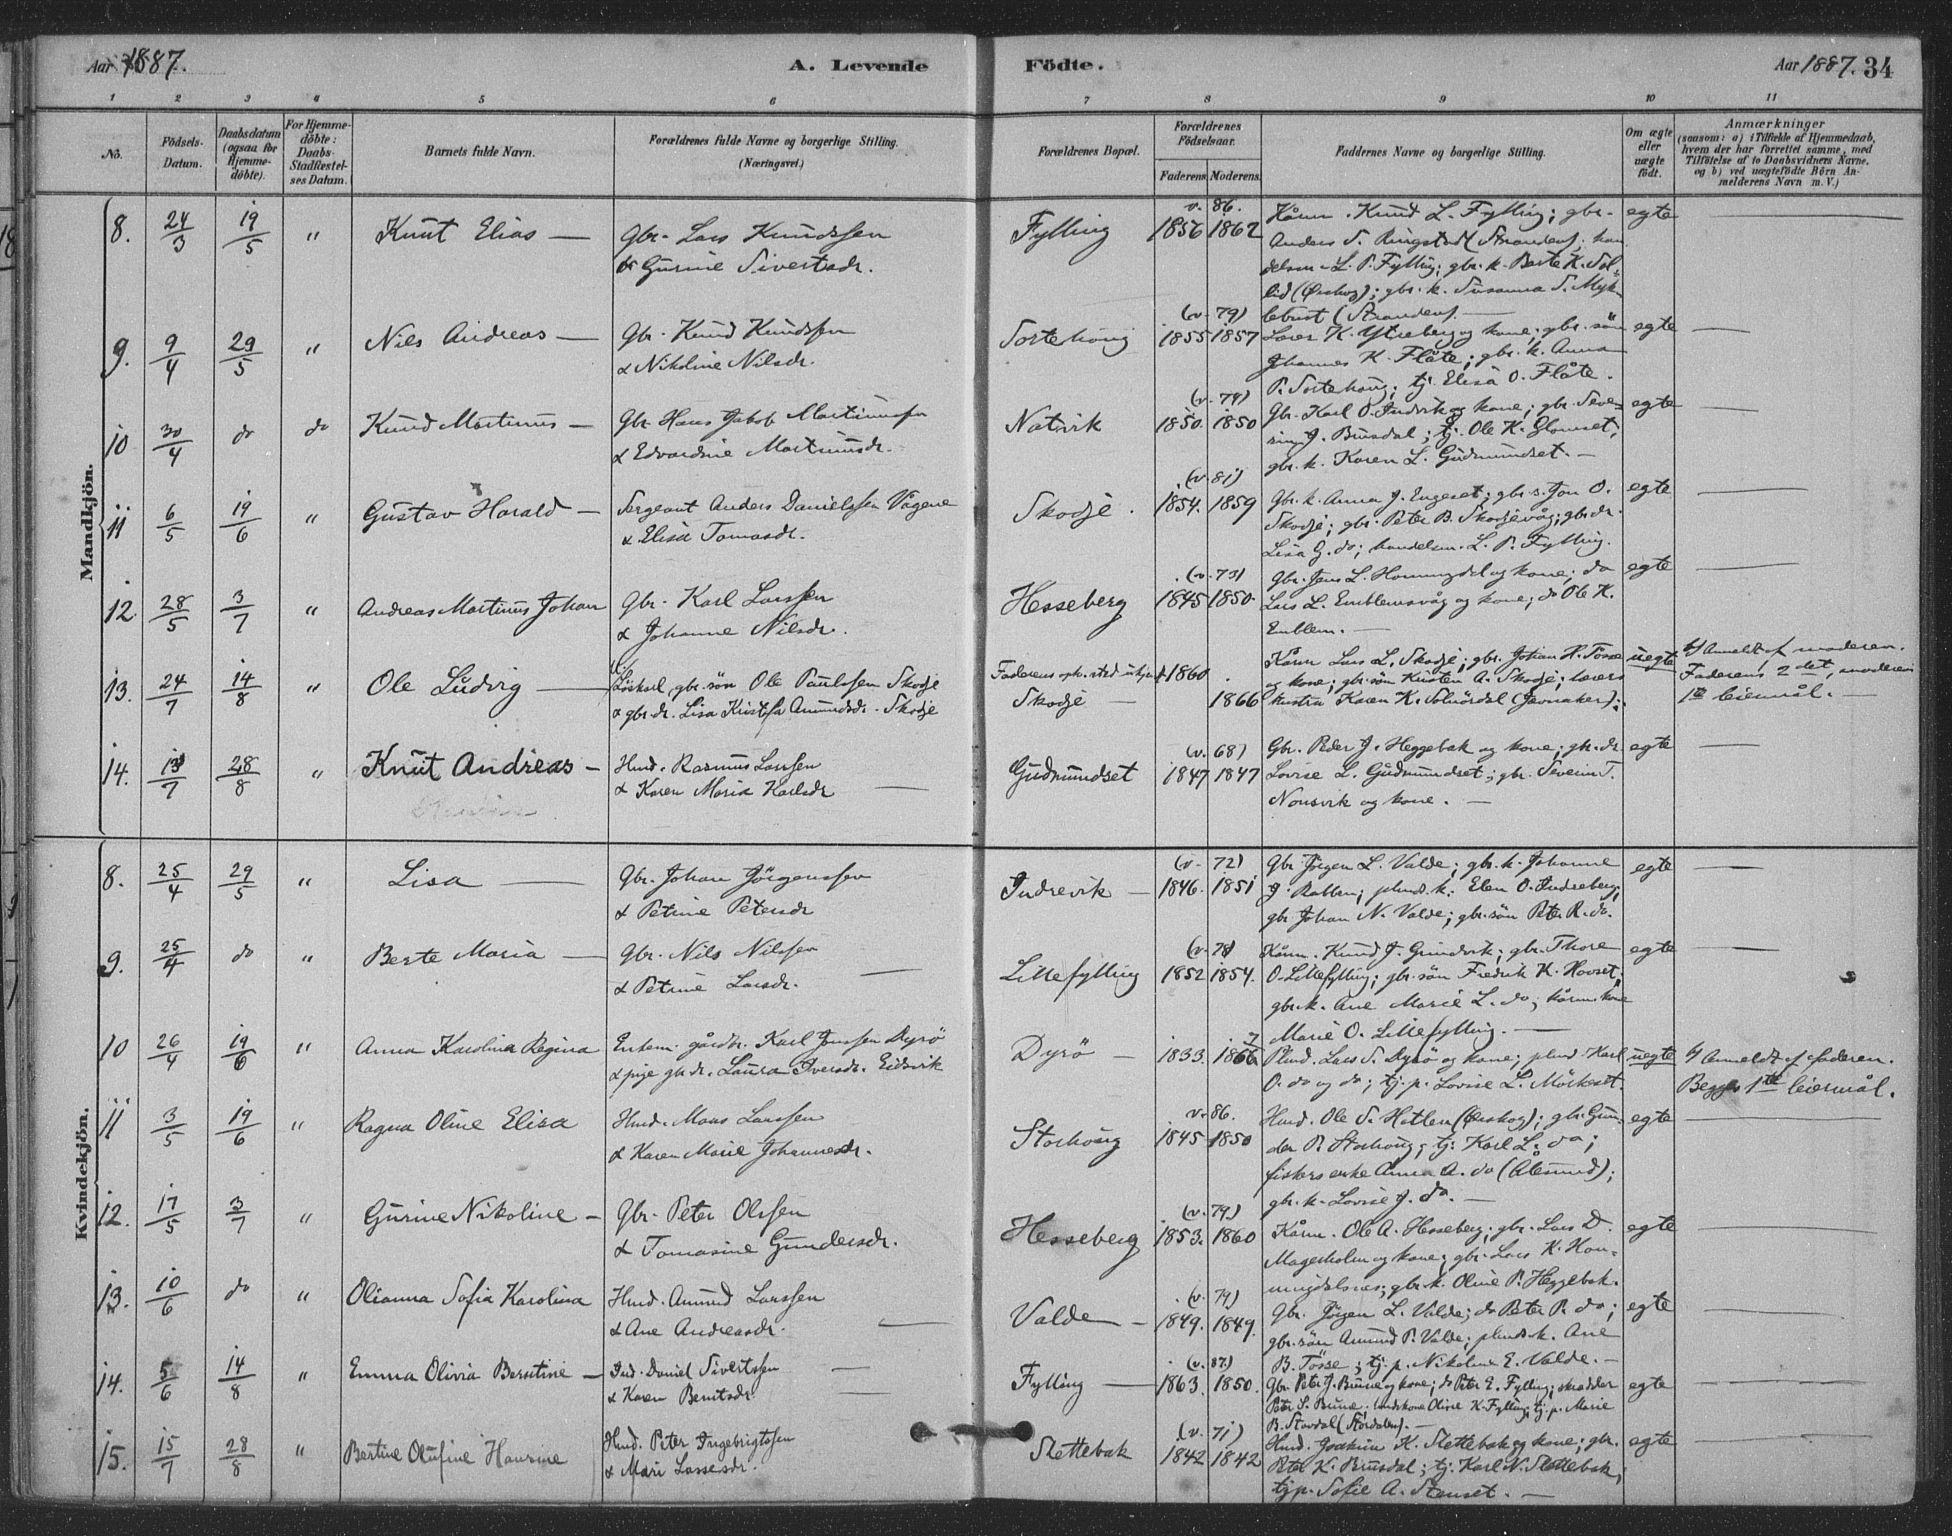 Aar 1887.
A. Levende Födte.
Aar 1887. 34
1 2 3 4 5 6 7 8 9 10 11
No.
Födsels-Datum.
Daabsdatum (ogsaa for Hjemme-döbte).
For Hjemme-döbte: Daabs-Stadfæstel-ses Datum.
Barnets fulde Navn.
Forældrenes fulde Navne og borgerlige Stilling. (Næringsvei.)
Forældrenes Bopæl.
Forældrenes Födselsaar.
Faderens. Moderens.
Faddernes Navne og borgerlige Stilling.
Om ægte eller uægte födt.
Anmærkninger
(saasom: a) i Tilfælde af Hjemmedaab, hvem der har forrettet samme, med Tilföielse af to Daabsvidners Navne. og b) ved uægtefödte Börn An-melderens Navn m. V.)
Mandkjön.
8. 24/3 19/5 " Knut Elias —
Gbr. Lars Knudssen
& Gurine Sivertsdr.
Fylling
v. 86.
1856 1862
Kårm. Knud L. Fylling; gbr.
Anders S. Ringstad (Stranden); han
delsm. L. P. Fylling; gbr. k. Berte K. Sol
lid (Ørskog); gbr. k. Susanna S. Myk
lebust (Stranden). —
egte
9. 9/4 29/5 " Nils Andreas —
Gbr. Knud Knudssen
& Nikoline Nilsdr.
Sortehoug
(v. 79)
1855 1857
Lærer K. Ytreberg og kone; gbr. sön
Johannes K. Flåte; gbr. k. Anna
P. Sortehoug; tj. Elisa O. Flåte.
egte
10 30/4 do do Knud Martinus —
Gbr. Hans Jakob Martinussen
& Edvardine Martinusdr.
Natvik
(v. 74)
1850. 1850
Gbr. Karl O. Indrevik og kone; gbr. Seve-
rin J. Brusdal; tj. Ole K. Glomset;
gbr. k. Karen L. Gudmundset. —
egte
11 6/5 19/6 " Gustav Harald —
Sergeant Anders Danielssen Vågene
& Elisa Tomasdr.
Skodje.
(v. 81)
1854. 1859
Gbr. k. Anna J. Engeset; gbr. s. Jon O.
Skodje; gbr. Peter B. Skodjevåg; gbr. dr.
Lisa G. do; handelsm. L. P. Fylling.
egte
12. 28/5 3/7 " Andreas Martinus Johan
Gbr. Karl Larssen
& Johanne Nilsdr.
Hesseberg
(v. 73)
1845 1850.
Gbr. Jens L. Honningdal og kone; do
Lars L. Emblemsvåg og kone; do Ole K.
Emblem. —
egte
13. 24/7 14/8 " Ole Ludvig —
Löskarl, gbr. sön Ole Paulssen Skodje
& gbr. dr. Lisa Kristofa Amundsdr. Skodje
Faderens oph. sted ukjent
Skodje —
1860
1866
Kårm. Lars L. Skodje; gbr. Johan H. Tösse
og kone; gbr. sön Kristen A. Skodje; lærer
kustra Karen K. Solnördal (Jevnaker).
uegte
b) Anmeldt af moderen.
Faderens 2det, moderens
1te leiermål. —
14. 13/7 28/8 " Knut Andreas —
Hmd. Rasmus Larssen
& Karen Maria Karlsdr —
Gudmundset
(v. 68)
1847 1847
Gbr. Peder J. Heggebak og kone; gbr. dr
Lovise L. Gudmundset; gbr. Severin T.
Nonsvik og kone. —
egte
Kvindekjön.
8. 25/4 29/5 " Lisa —
Gbr. Johan Jörgenssen
& Petrine Petersdr
Indrevik —
(v. 72)
1846. 1851
Gbr. Jörgen L. Valde; gbr. k. Johanne
J. Ratten; plmd. k. Elen O. Indreberg;
gbr. Johan N. Valde; gbr. sön Peter R. do.
egte
9. 25/4 do " Berte Maria —
Gbr. Nils Nilssen
& Petrine Larsdr. —
Lillefylling
(v. 78)
1852 1854.
Kårm. Knud J. Grindvik; gbr. Thore
O. Lillefylling; gbr. sön Fredrik K. Hovset;
gbr. k. Ane Marie L. do; kårm. kone
Marie O. Lillefylling. —
egte
10 26/4 19/6 " Anna Karolina Regina
Enkem. gårdbr. Karl Jonssen Dyrö
& pige gbr. dr. Laura Iversdr. Eidsvik
Dyrö —
1833. 1866
Plmd. Lars S. Dyrö og kone; plmd. Karl
O. do og do; tj. p. Lovise L. Mörkeset.
uegte
b) Anmeldt af faderen.
Begges 1te leiermål.
11 3/5 19/6 " Ragna Oline Elisa
Hmd. Mons Larssen
& Karen Marie Johannesdr.
Storhoug
v. 86.
1845 1850
Hmd. Ole S. Hatlen (Ørskog); gbr. Gun-
der P. Storhoug; tj. Karl L. do;
fiskers enke Anna A. do (Ålesund);
gbr. k. Lovise J. do. —
egte
12. 17/5 3/7 " Gurine Nikoline —
Gbr. Peter Olssen
& Tomasine Gundersdr.
Hesseberg
(v. 79)
1853. 1860
Kårm. Ole A. Hesseberg; gbr. Lars D.
Magerholm og kone; gbr. Lars K. Hon-
ningdalsnes; gbr. k. Oline P. Heggebak.
egte
13. 10/6 do " Olianna Sofia Karolina
Hmd. Amund Larssen
& Ane Andreasdr. —
Valde —
(v. 74)
1849. 1849.
Gbr. Jörgen L. Valde; do Peter P. do;
gbr. sön Amund P. Valde; plmds k. Ane
B. Tösse; tj. p. Nikoline E. Valde. —
egte
14. 5/6 14/8 " Emma Olivia Berntine —
Ind. Daniel Sivertssen —
& Karen Berntsdr —
Fylling —
(v. 87.)
1863. 1850.
Gbr. Peter J. Brune og kone; do Peter E. Fylling; skrædder
Peter S. Brune. landskone Oline K. Fylling; tj. p. Marie
B. Stavdal (Stordalen). —
egte
15. 15/7 28/8 " Bertine Olufine Hansine
Hmd. Peter Ingebrigtssen
& Mari Lassesdr.
Slettebak
(v. 71)
1842 1842
Hmd. Joakim K. Slettebak og kone; gbr.
Peter K. Brusdal; tj. Karl N. Slettebak;
tj. p. Sofie A. Stenset. —
egte